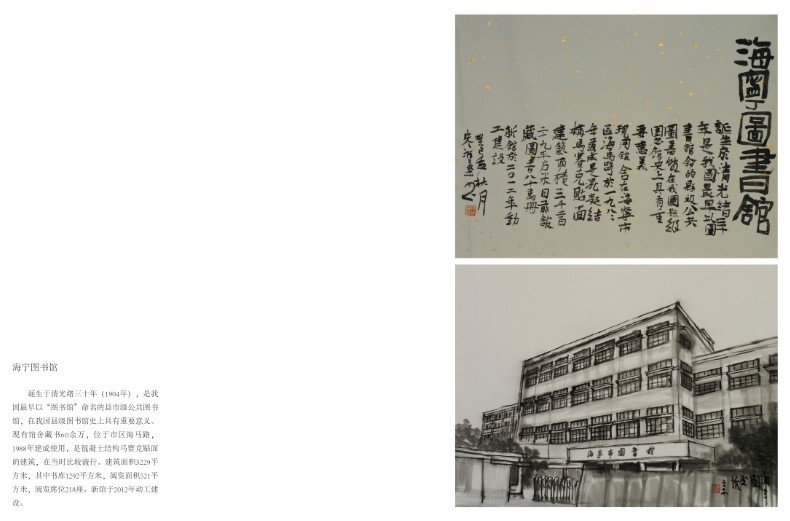 海宁图书馆
诞生于清光绪三十年（1904年），是我
国最早以“图书馆”命名的县市级公共图书
馆，在我国县级图书馆史上具有重要意义。
现有馆舍藏书60余万，位于市区海马路，
1988年建成使用，是混凝土结构马赛克贴面
的建筑，在当时比较流行。建筑面积3229平
方米，其中书库1292平方米，阅览面积521平
方米，阅览席位218座。新馆于2012年动工建
设。
海寧圖書館
誕生於清光緒三十
年是我國最早以圖
書館命名的縣級公共
圖書館在我國縣級
圖書館史上具有重
要意義
現有館舍在海寧市
區海馬路於一九八八
年落成是混凝結
構馬賽克貼面
建築面積三千二百
二十九平方米目前館
藏圖書八十萬冊
新館於二〇一二年動
工建設
海寧市圖書館